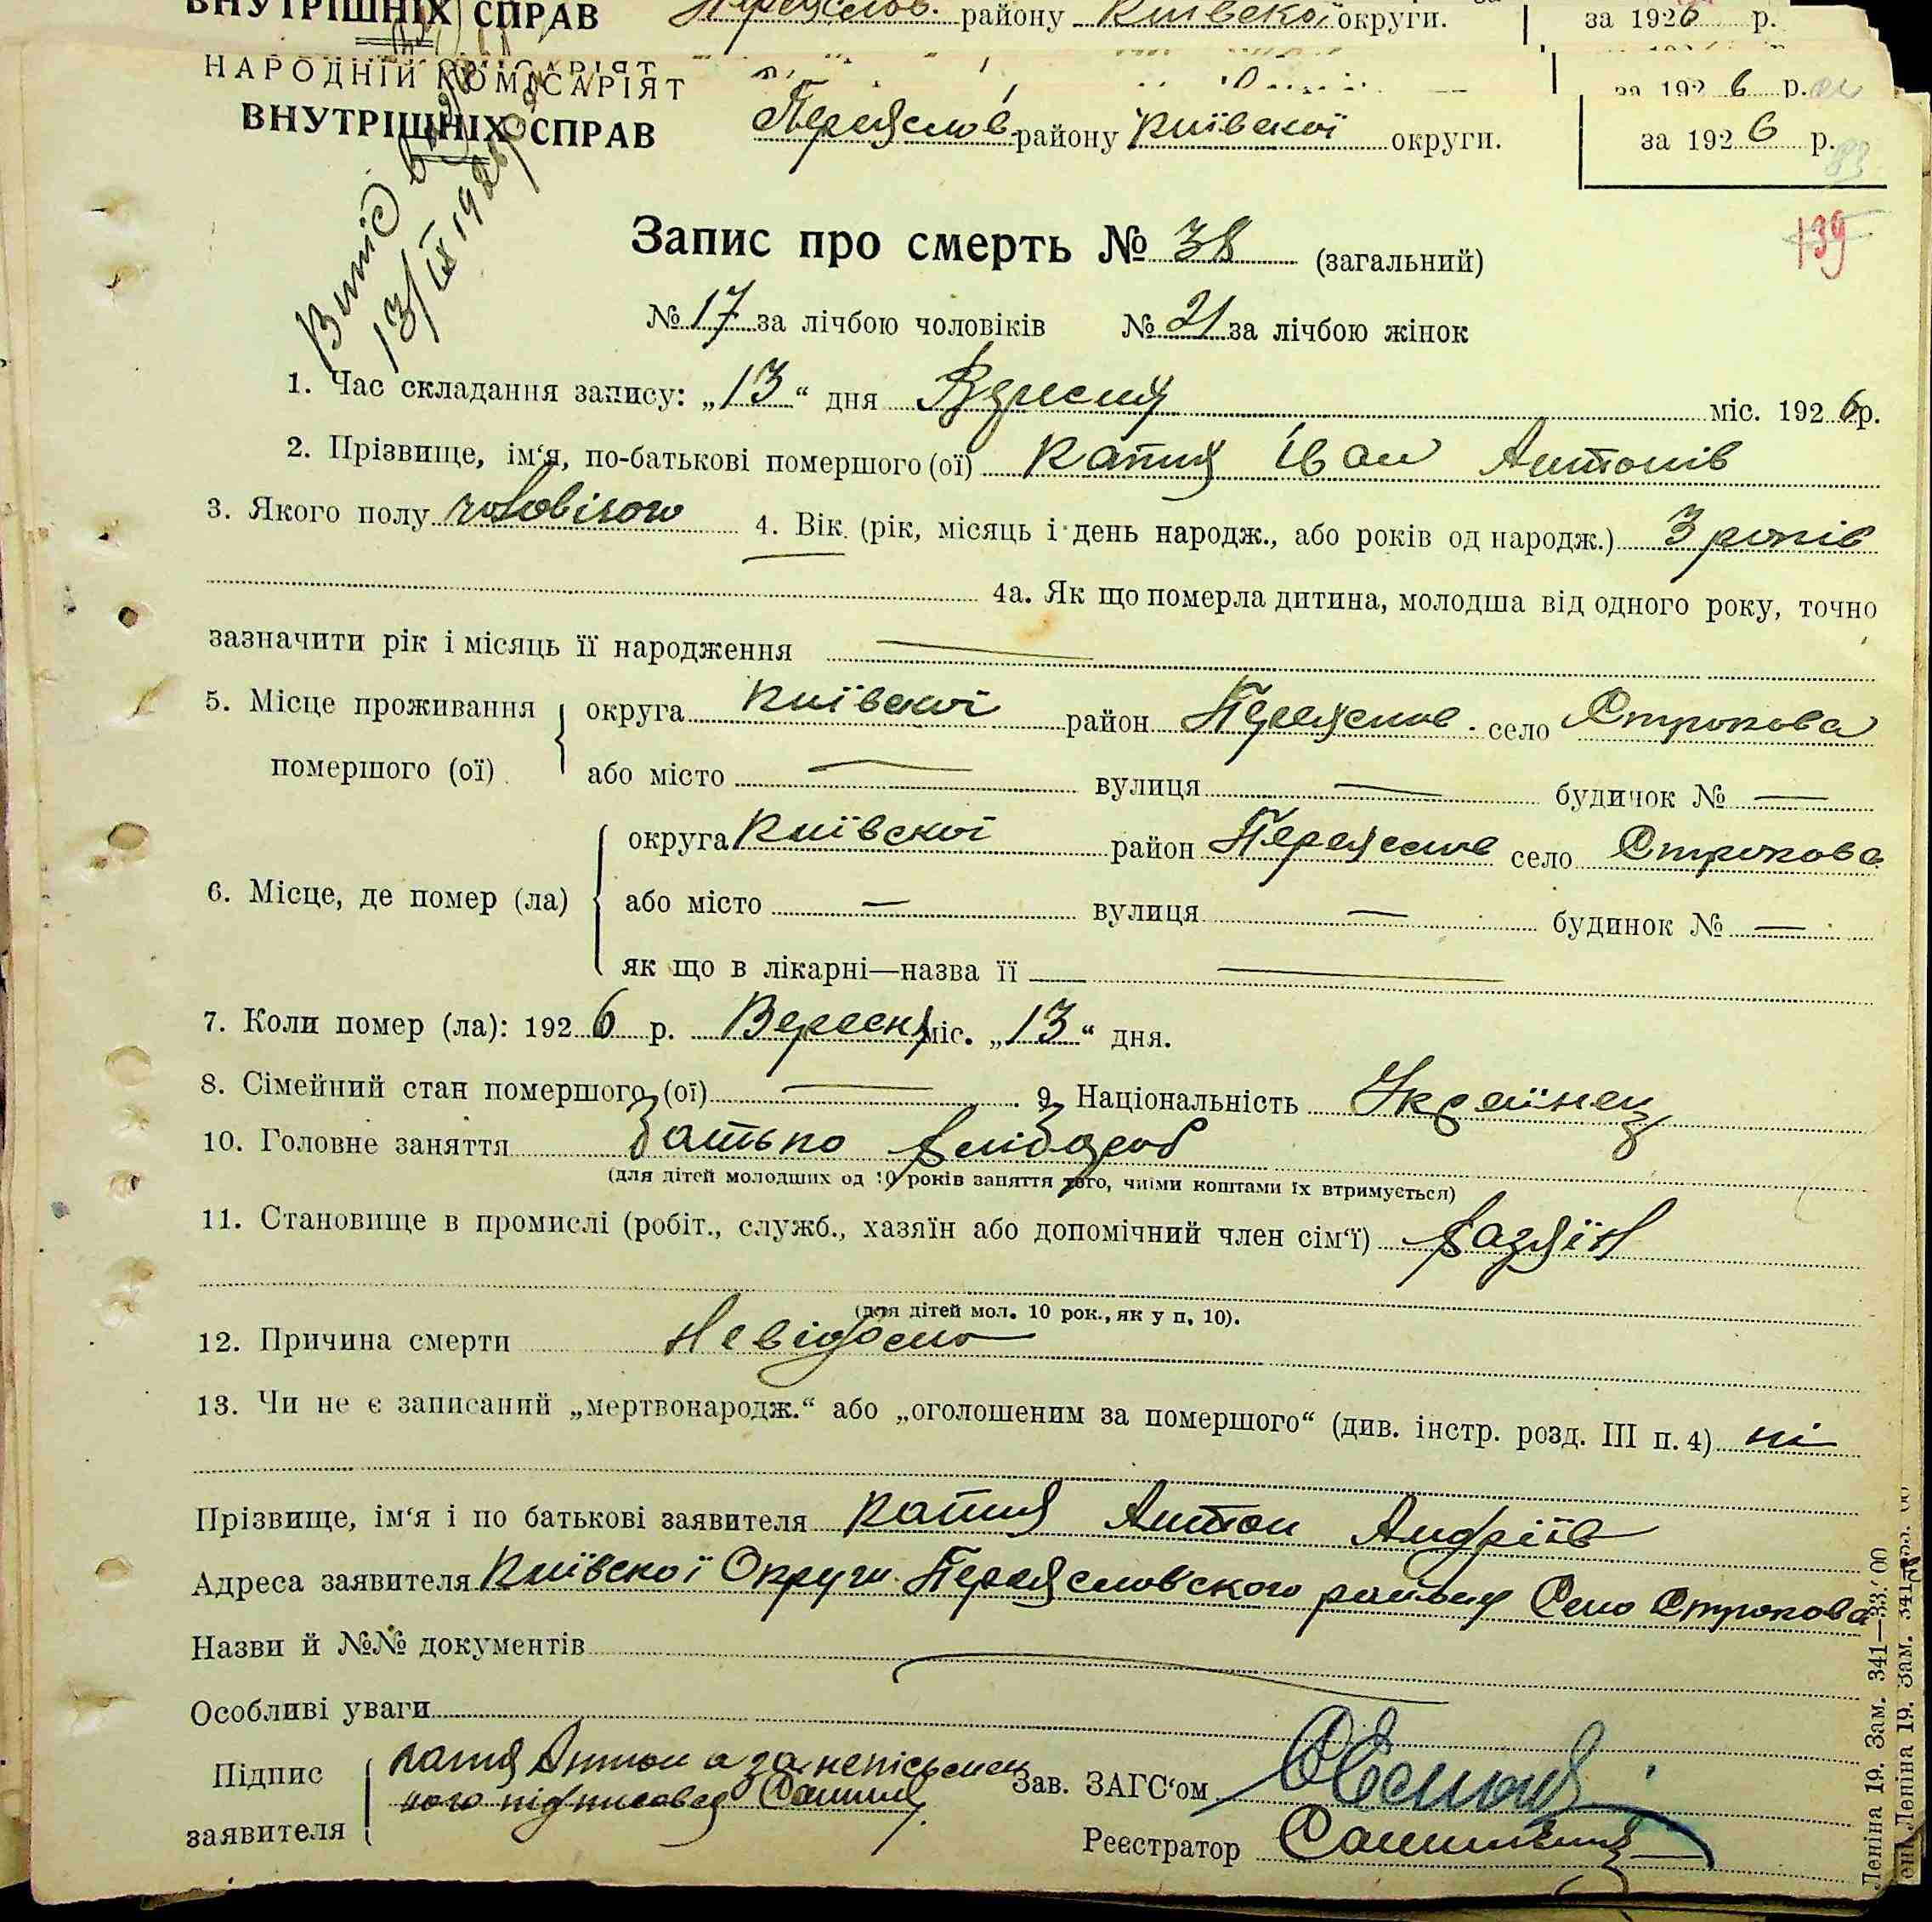 ВНУТРІШНІХ СПРАВ Переяслов. району Київскої округи. за 1926 р.
НАРОДНІЙ КОМІСАРІЯТ за 192 6 р.
ВНУТРІШНІХ СПРАВ Переяслов. району Київскої округи. за 192 6 р.
13/IX 1926
139
Запис про смерть № 38 (загальний)
№ 17 за лічбою чоловіків № 21 за лічбою жінок
1. Час складання запису: „13“ дня Вересня міс. 192 6 р.
2. Прізвище, ім‘я, по-батькові помершого (ої) Капня Іван Антонів
3. Якого полу чоловічого 4. Вік (рік, місяць і день народж., або років од народж.) 3 років
4а. Як що померла дитина, молодша від одного року, точно
зазначити рік і місяць її народження —
5. Місце проживання округа Київскої район Переяслов. село Строкова
помершого (ої) або місто — вулиця — будинок № —
округа Київскої район Переяслов село Строкова
6. Місце, де помер (ла) або місто — вулиця — будинок № —
як що в лікарні—назва її —
7. Коли помер (ла): 192 6 р. Вересня міс. „13“ дня.
8. Сімейний стан помершого (ої) — 9. Національність Українец
10. Головне заняття Батько хлібороб
(для дітей молодших од 10 років заняття того, чиїми коштами їх втримується)
11. Становище в промислі (робіт., служб., хазяїн або допомічний член сім‘ї) хазяїн
(для дітей мол. 10 рок., як у п. 10).
12. Причина смерти Невідомо
13. Чи не є записаний „мертвонародж.“ або „оголошеним за помершого“ (див. інстр. розд. III п. 4) ні
Прізвище, ім‘я і по батькові заявителя Капня Антон Андріїв
Адреса заявителя Київскої Округи Переясловского району Село Строкова
Назви й №№ документів —
Особливі уваги
Підпис Капня Антон а за неписьмен
ного підписався
заявителя
Зав. ЗАГС‘ом
Реєстратор
Леніна 19. Зам. 341—33.000
Леніна 19. Зам. 341